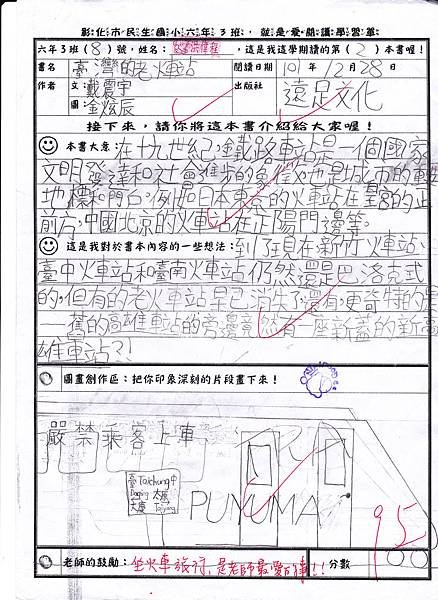 彰化市民生國小六年3班，就是愛閱讀學習單
六年3班(8)號，姓名：，這是我這學期讀的第(2)本書喔！
書名 臺灣的老火車站 閱讀日期 101年12月28日
作者 文：戴震宇 圖：金炫辰 出版社 遠足文化
接下來，請你將這本書介紹給大家喔！
本書大意：在十九世紀，鐵路車站是一個國家
文明發達和社會進步的象徵，也是城市的重要
地標和門戶。例如日本東京的火車站在皇宮的正
前方，中國北京的火車站在正陽門邊等。
這是我對於書本內容的一些想法：到了現在，新竹火車站、
臺中火車站和臺南火車站仍然還是巴洛克式
的，但有的老火車站早已消失了，還有，更奇特的是
—舊的高雄車站的旁邊竟然有一座新蓋的新高
雄車站?!
圖畫創作區：把你印象深刻的片段畫下來！
嚴禁乘客上車
臺Taichung中
大慶
PUYUMA
TRA
95
老師的鼓勵：坐火車旅行，是老師最愛的事!! 分數